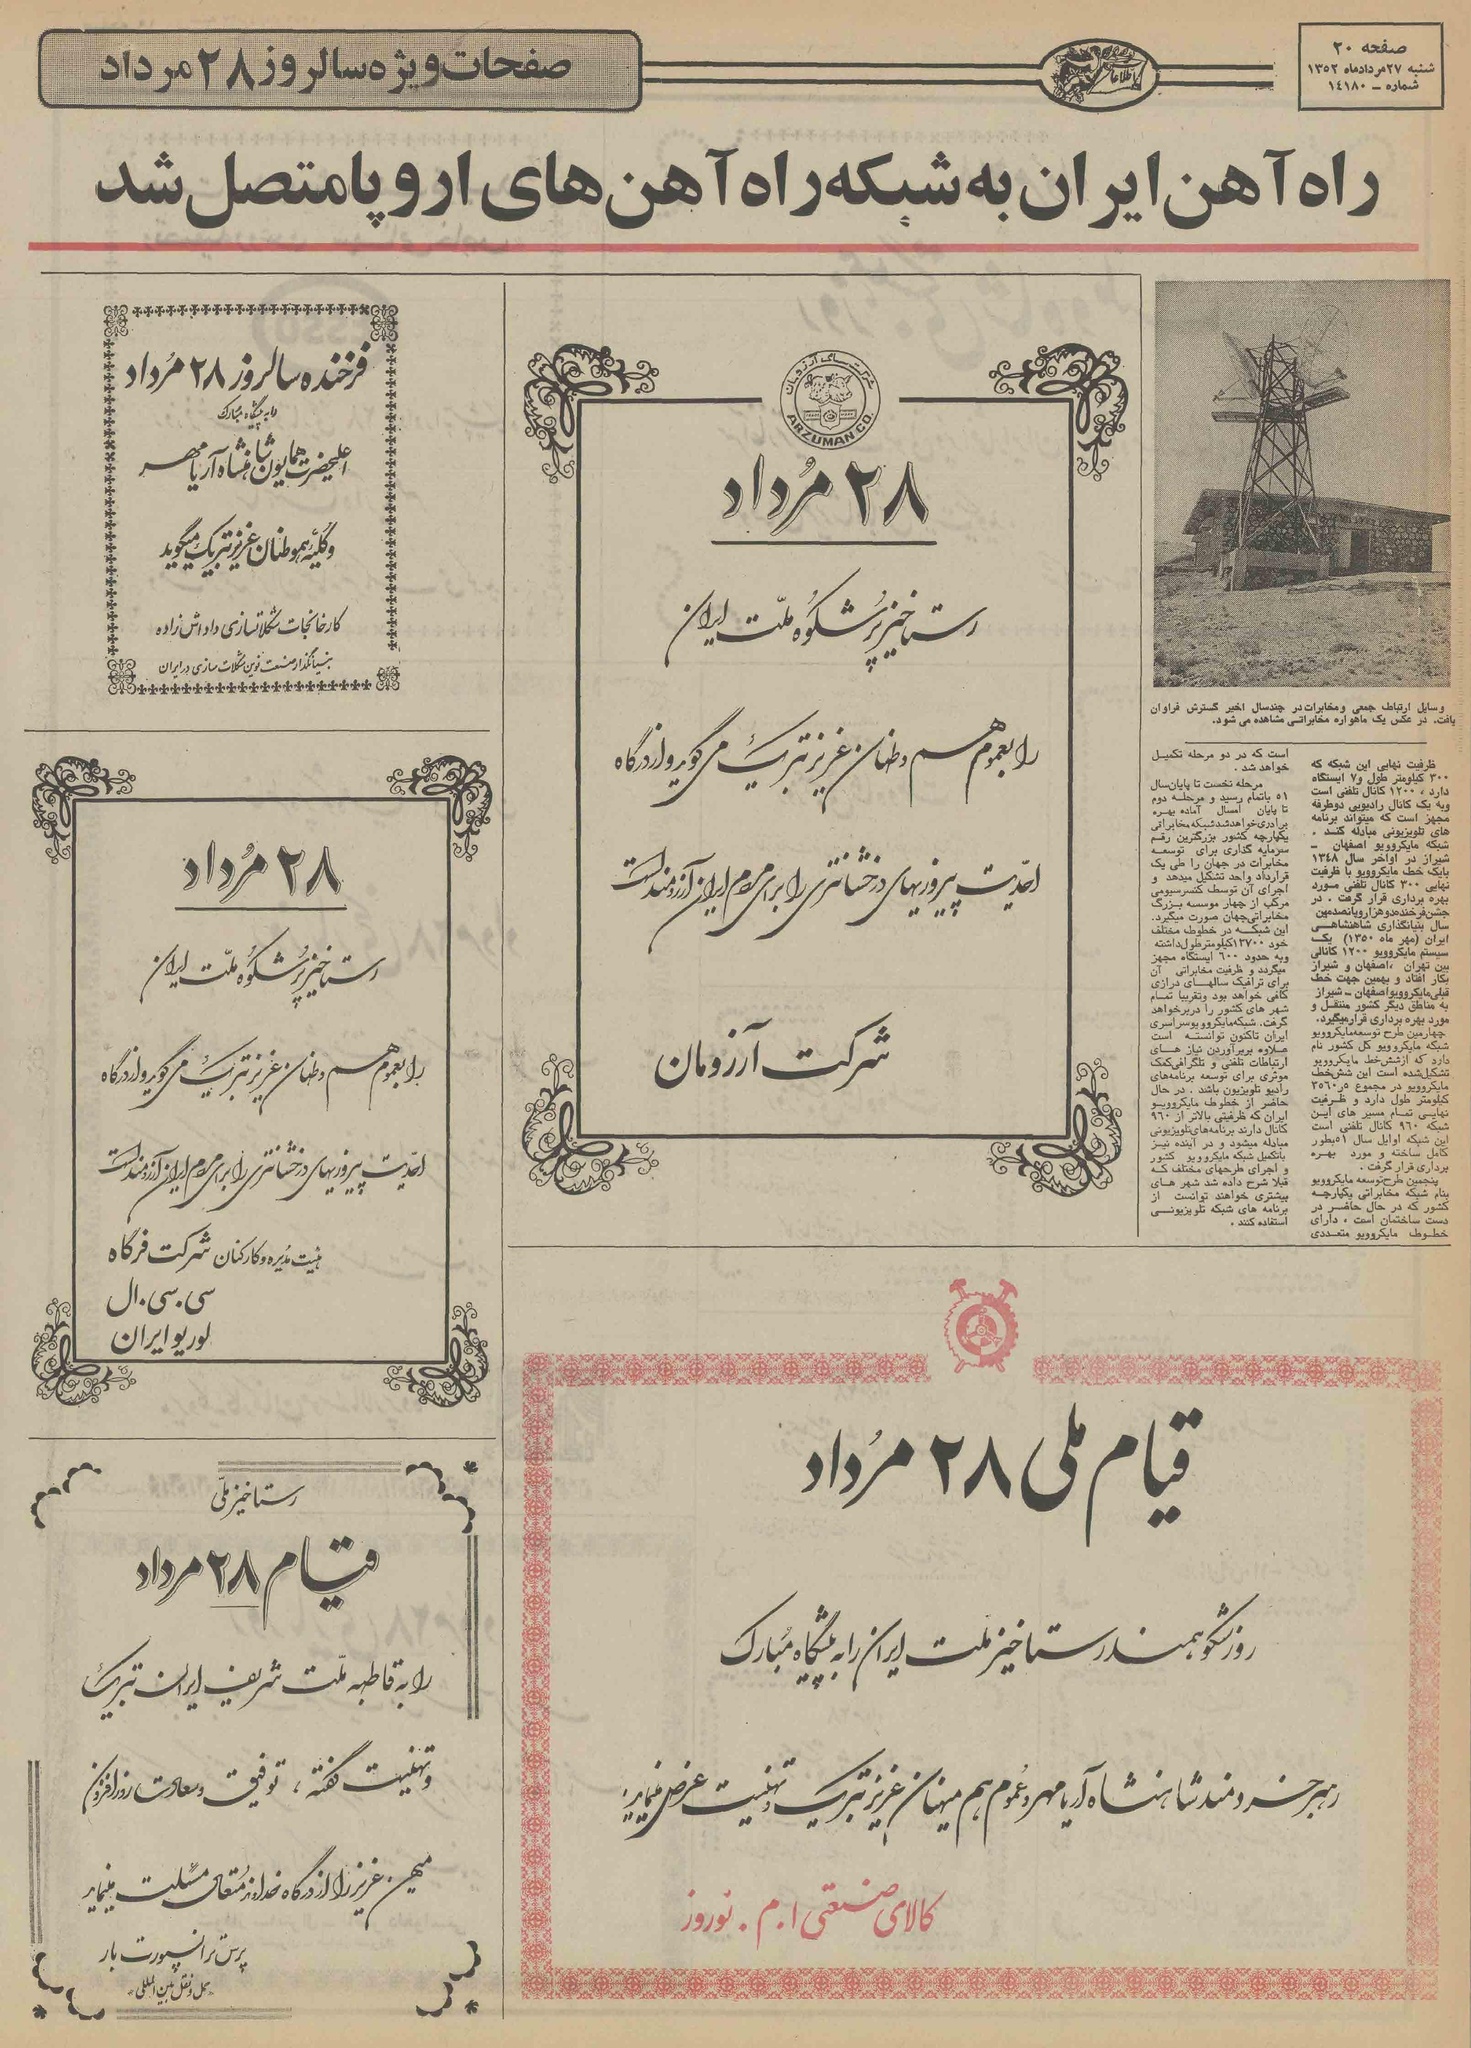 صفحه ۲۰
شنبه ۲۷ مردادماه ۱۳۵۲
شماره – ۱٤۱۸۰
اطلاعات
صفحات ویژه سالروز ۲۸ مرداد
راه آهن ایران به شبکه راه آهن های اروپا متصل شد
وسایل ارتباط جمعی ومخابرات در چندسال اخیر گسترش فراوان
یافت. در عکس یک ماهواره مخابراتی مشاهده می شود.
ظرفیت نهایی این شبکه که
۳۰۰ کیلومتر طول و۷ ایستگاه
دارد ، ۱۲۰۰ کانال تلفنی است
وبه یک کانال رادیویی دوطرفه
مجهز است که میتواند برنامه
های تلویزیونی مبادله کند .
شبکه مایکروویو اصفهان –
شیراز در اواخر سال ۱۳٤۸
بایک خط مایکروویو با ظرفیت
نهایی ۳۰۰ کانال تلفنی مورد
بهره برداری قرار گرفت . در
جشن فرخنده دوهزاروپانصدمین
سال بنیانگذاری شاهنشاهی
ایران (مهر ماه ۱۳۵۰) یک
سیستم مایکروویو ۱۲۰۰ کانالی
بین تهران ،اصفهان و شیراز
بکار افتاد و بهمین جهت خط
قبلی مایکروویو اصفهان – شیراز
به مناطق دیگر کشور منتقل و
مورد بهره برداری قرار میگیرد.
چهارمین طرح توسعه مایکروویو
شبکه مایکروویو کل کشور نام
دارد که ازشش خط مایکروویو
تشکیل شده است این شش خط
مایکروویو در مجموع
کیلومتر طول دارد و ظرفیت
نهایی تمام مسیر های این
شبکه ۹۶۰ کانال تلفنی است
این شبکه اوایل سال ۵۱بطور
کامل ساخته و مورد بهره
برداری قرار گرفت .
پنجمین طرح توسعه مایکروویو
بنام شبکه مخابراتی یکپارچه
کشور که در حال حاضر در
دست ساختمان است ، دارای
خطوط مایکروویو متعددی
است که در دو مرحله تکمیل
خواهد شد .
مرحله نخست تا پایان سال
۵۱ باتمام رسید و مرحله دوم
تا پایان امسال آماده بهره
برداری خواهد شد شبکه مخابراتی
یکپارچه کشور بزرگترین رقم
سرمایه گذاری برای توسعه
مخابرات در جهان را طی یک
قرارداد واحد تشکیل میدهد و
اجرای آن توسط کنسرسیومی
مرکب از چهار موسسه بزرگ
مخابراتی جهان صورت میگیرد.
این شبکه در خطوط مختلف
خود ۱۳۷۰۰کیلومتر طول داشته
وبه حدود ۶۰۰ ایستگاه مجهز
میگردد و ظرفیت مخابراتی آن
برای ترافیک سالهای درازی
کافی خواهد بود وتقریبا تمام
شهر های کشور را دربرخواهد
گرفت. شبکه مایکروویو سراسری
ایران تاکنون توانسته است
علاوه بربرآوردن نیاز های
ارتباطات تلفنی و تلگرافی کمک
موثری برای توسعه برنامه های
رادیو تلویزیون باشد . در حال
حاضر از خطوط مایکروویو
ایران که ظرفیتی بالاتر از ۹۶۰
کانال دارند برنامه های تلویزیونی
مبادله میشود و در آینده نیز
باتکمیل شبکه مایکروویو کشور
و اجرای طرحهای مختلف که
قبلا شرح داده شد شهر های
بیشتری خواهند توانست از
برنامه های شبکه تلویزیونی
استفاده کنند .
شرکت سهامی آرزومان
ARZUMAN CO.
۲۸ مُرداد
رستاخیز پرشکوه ملّت ایران
را بعموم هم وطنان عزیز تبریک می گوید و از درگاه
احدیت پیروزیهای درخشانتری را برای مردم ایران آرزومند است
شرکت آرزومان
فرخنده سالروز ۲۸ مُرداد
را به پیشگاه مبارک
اعلیحضرت همایون شاهنشاه آریامهر
وکلیّه هموطنان عزیز تبریک میگوید
کارخانجات شکلاتسازی داداش زاده
بنیانگذار صنعت نوین شکلات سازی در ایران
۲۸ مُرداد
رستاخیز پرشکوه ملّت ایران
را بعموم هم وطنان عزیز تبریک می گوید و از درگاه
احدیت پیروزیهای درخشانتری را برای مردم ایران آرزومند است
هیئت مدیره وکارکنان شرکت فرگاه
سی.سی.ال
لوریو ایران
رستاخیز ملّی
قیام ۲۸ مرداد
را به قاطبه ملّت شریف ایران تبریک
و تهنیت گفته ، توفیق و سعادت روزافزون
میهن عزیز را از درگاه خداوند متعال مسئلت مینماید
پرس ترانسپورت بار
«حمل و نقل بین المللی»
قیام ملی ۲۸ مُرداد
روز شکوهمند رستاخیز ملت ایران را به پیشگاه مُبارک
رهبر خردمند شاهنشاه آریامهر و عُموم هم میهنان عزیز تبریک و تهنیت عرض مینماید
کالای صنعتی ا.م. نوروز